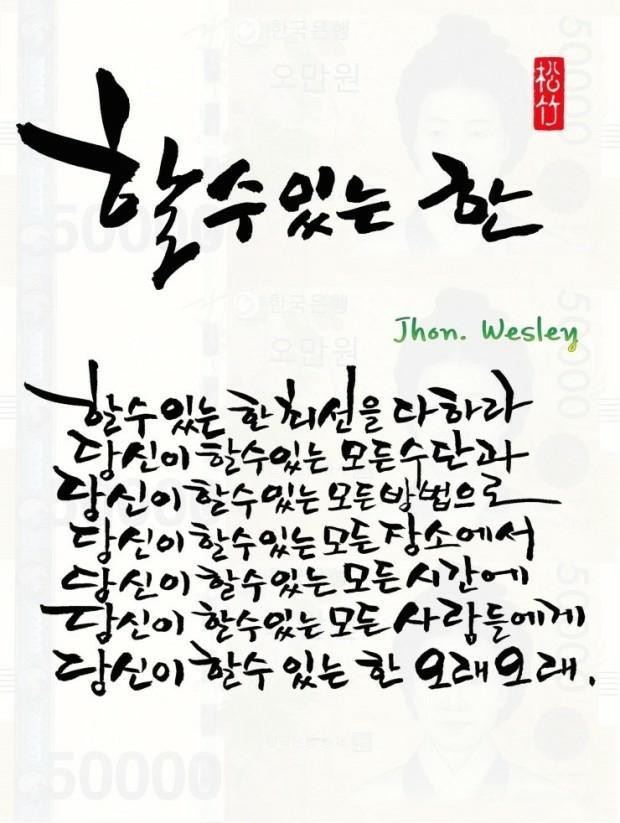 한국은행
오만원
50000
松竹
할 수 있는 한
50000
한국은행
오만원
50000
Jhon. Wesley
할 수 있는 한 최선을 다하라
당신이 할 수 있는 모든 수단과
당신이 할 수 있는 모든 방법으로
당신이 할 수 있는 모든 장소에서
당신이 할 수 있는 모든 시간에
당신이 할 수 있는 모든 사람들에게
당신이 할 수 있는 한 오래 오래.
50000
50000